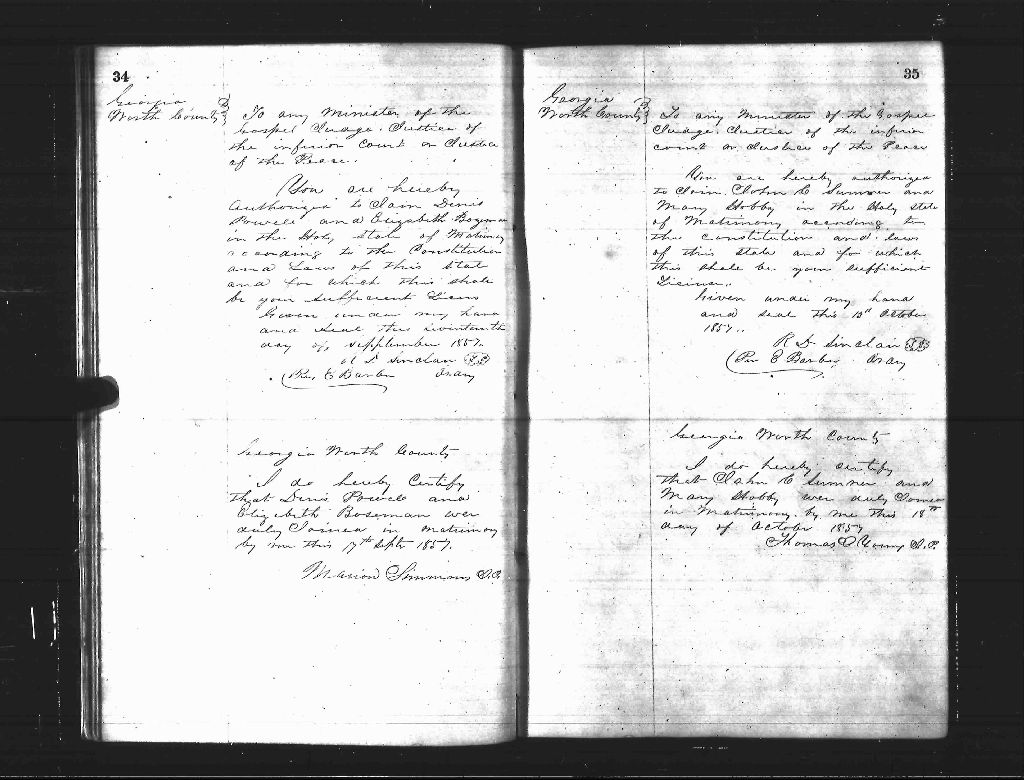 34
Georgia
Worth County
To any Minister of the
Gospel Judge Justice of
the inferior Court or Justice
of the Peace.
You are hereby
authorized to Join Denis
Powell and Elizabeth Bozeman
in the Holy state of Matrimony
according to the Constitution
and Laws of this State
and for which this shale
be your sufficient Licens
Given under my hand
and Seal this
day of September 1857.
R D Sinclair
Barber Ordny
Georgia Worth County
I do hereby Certify
that Denis Powell and
Elizabeth Boseman wer
duly Joined in matrimony
by me this 17th Septr 1857.
Marion Simmons J.P.
35
Georgia
Worth County
To any Minister of the Gospel
Judge Justice of the inferior
court or Justice of the Peace
You are hereby authorized
to Join John C Sumner and
Mary Hobby in the Holy state
of Matrimony according to
the constitution and laws
of this state and for which
this shale be your sufficient
License.
Given under my hand
and seal this October
1857.
R D Sinclair
Per E Barber Ordny
Georgia Worth County
I do hereby certify
that John C Sumner and
Mary Hobby wer duly Joined
in Matrimony by me this 18th
day of October 1857
Thomas C Young J.P.